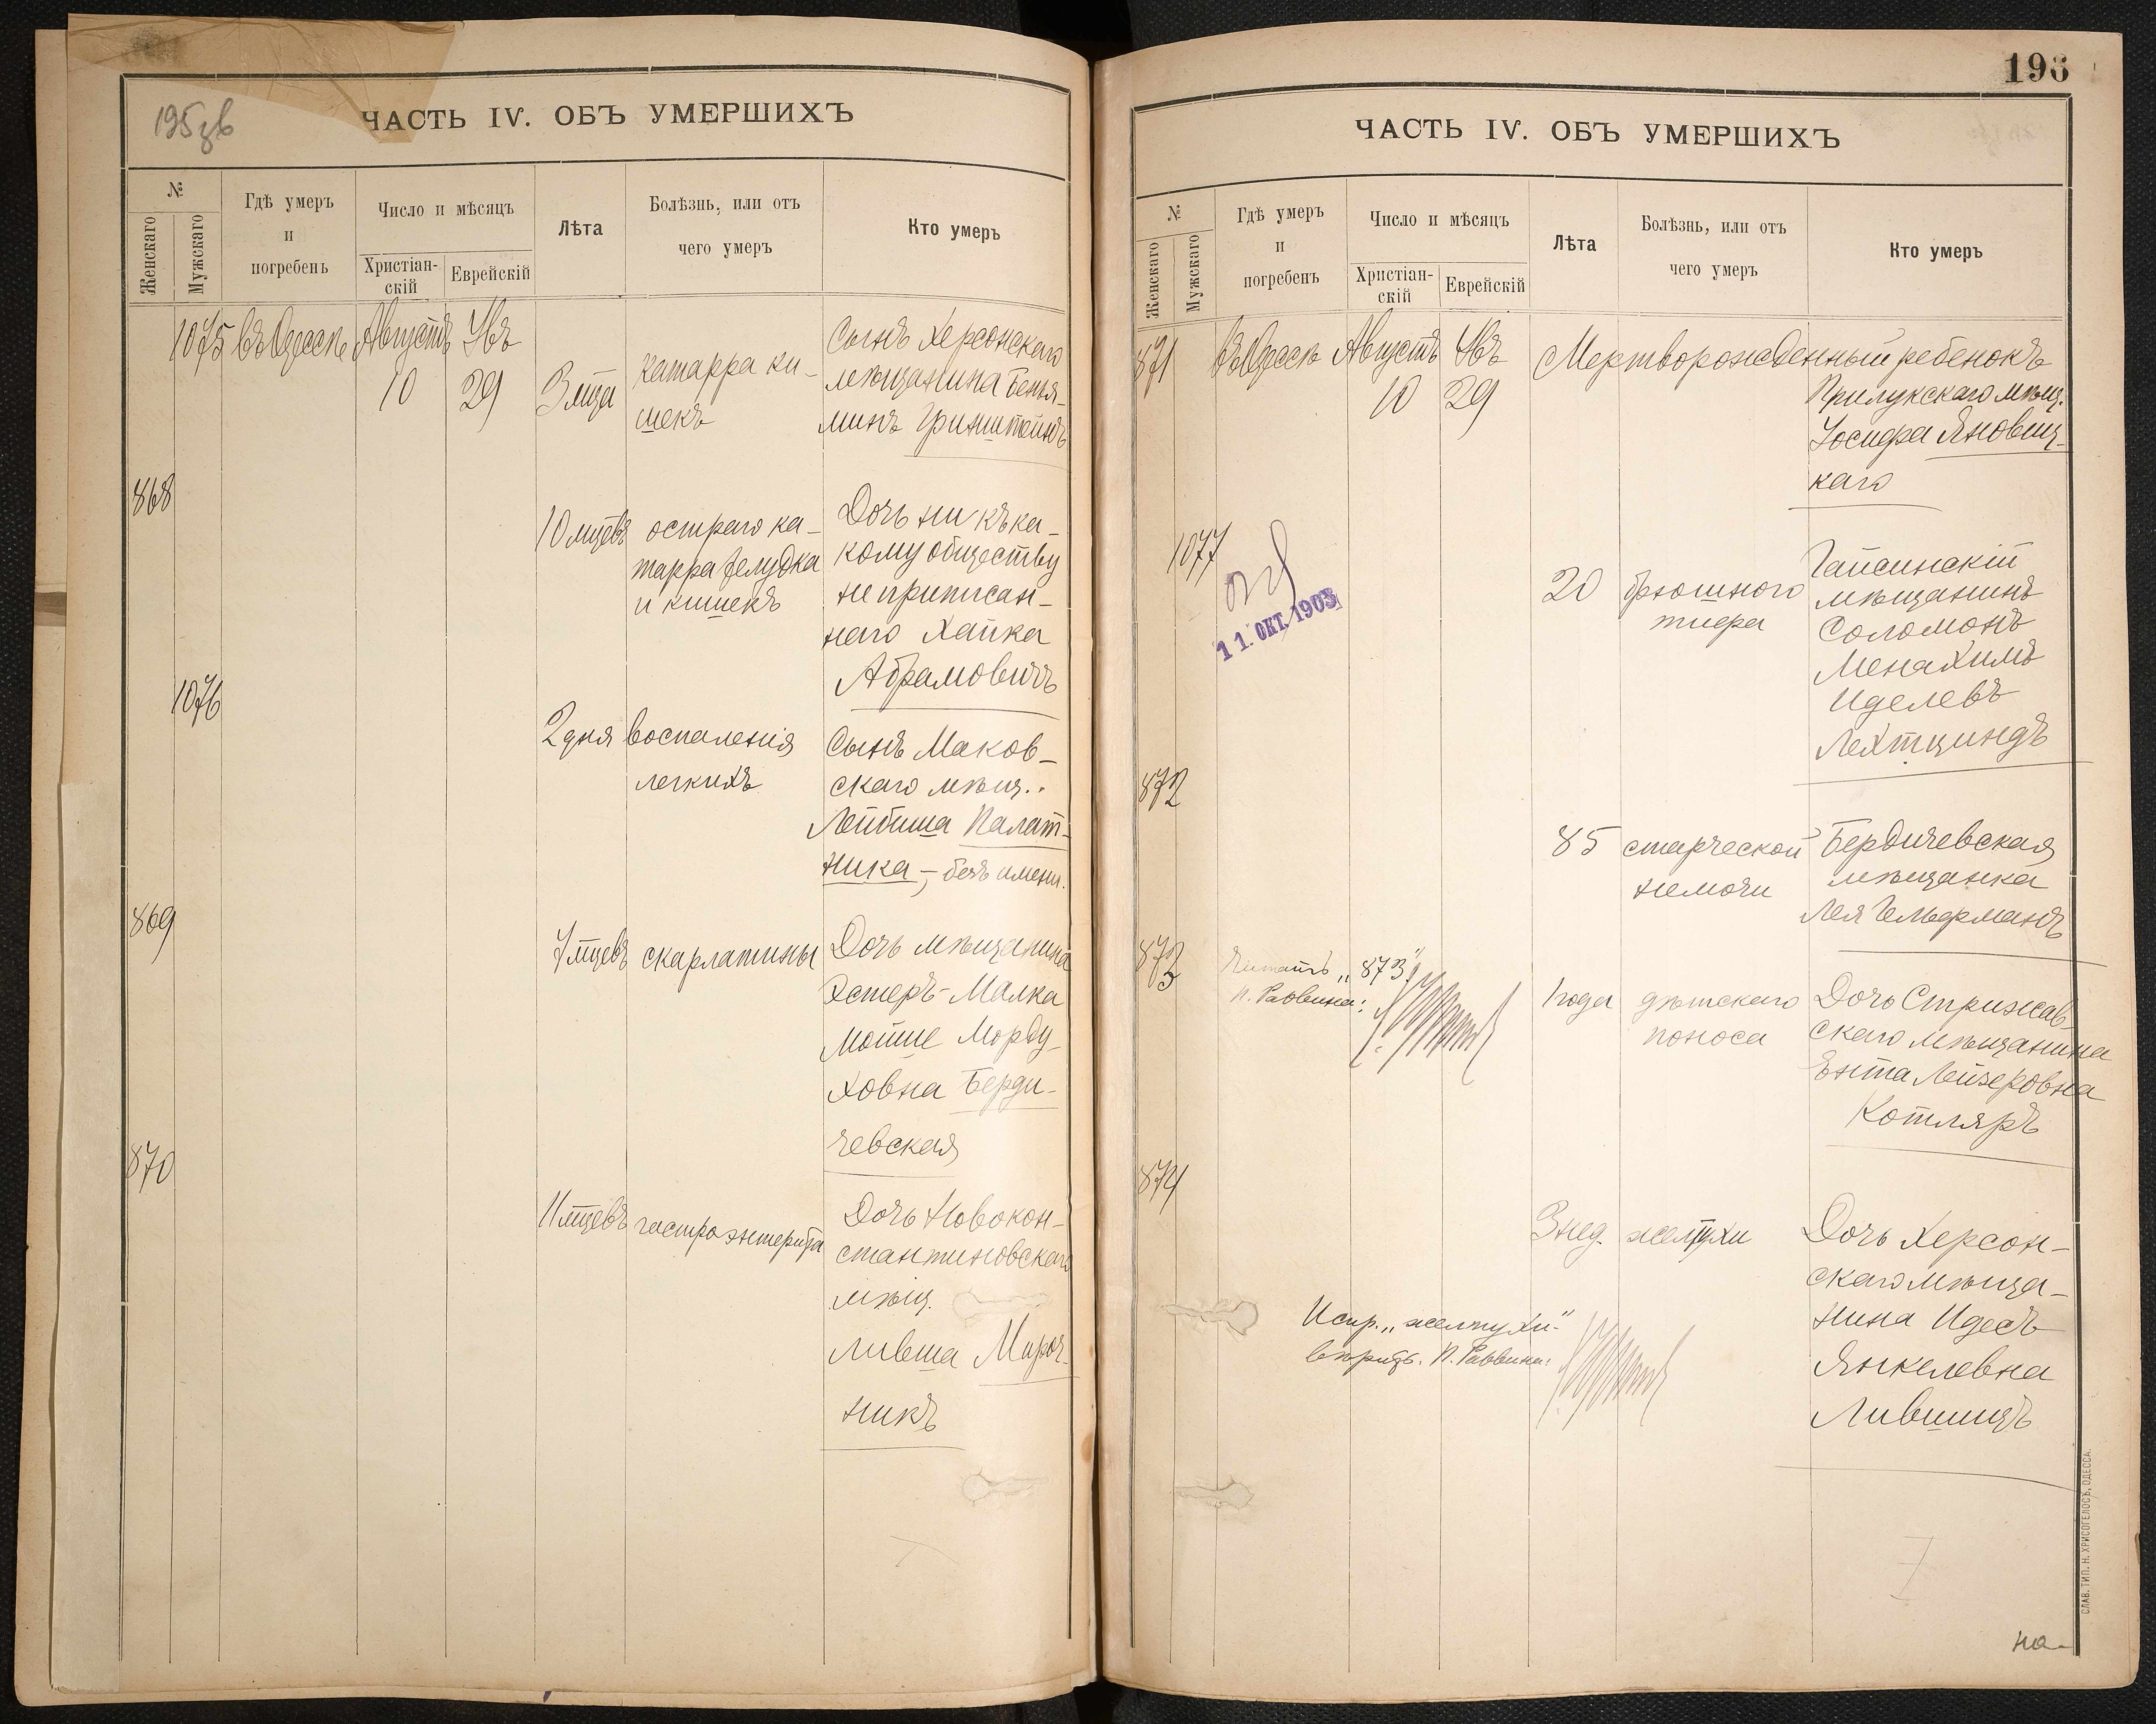 195 зв
ЧАСТЬ IV. ОБЪ УМЕРШИХЪ
№
Женскаго
Мужскаго
Гдѣ умеръ
и
погребенъ
Число и мѣсяцъ
Христіан-
скій
Еврейскій
Лѣта
Болѣзнь, или отъ
чего умеръ
Кто умеръ
1075 въ Одессѣ Августъ Увъ
10 29 3 мца
катарра ки-
шекъ
Сынъ Херсонскаго
мѣщанина Бенья-
минъ Гринштейнъ
868
10 мцевъ
остраго ка-
тарра желудка
и кишекъ
Дочь ни къ ка-
кому обществу
не приписан-
наго Хайка
Абрамовичъ
1076
2 дня
воспаленія
легкихъ
Сынъ Маков-
скаго мѣщ.
Лейбиша Палат-
ника -, безъ имени.
869
7 мцевъ
скарлатины
Дочь мѣщанина
Эстеръ-Малка
Мошие Морду-
ховна Берди-
чевская
870
11 мцевъ
гастроэнтерита
Дочь Новокон-
стантиновскаго
мѣщ.
Лившa Мироч-
никъ
196
ЧАСТЬ IV. ОБЪ УМЕРШИХЪ
№
Женскаго
Мужскаго
Гдѣ умеръ
и
погребенъ
Число и мѣсяцъ
Христіан-
скій
Еврейскій
Лѣта
Болѣзнь, или отъ
чего умеръ
Кто умеръ
871 въ Одессѣ Августъ Увъ
10 29
Мертворожденный ребенокъ
Прилукскаго мѣщ.
Іосифа Яновиц-
каго
1077
11. ОКТ. 1903
20
брюшного
тифа
Гайсинскій
мѣщанинъ
Соломонъ
Менахимъ
Иделевъ
Лехтциндъ
872
85
старческой
немочи
Бердичевская
мѣщанка
Лея Гельфманъ
873
Читать „873“
И. Раввина:
1 года
дѣтскаго
поноса
Дочь Стрижав-
скаго мѣщанина
Ента Лейзеровна
Котляръ
874
3 нед.
желтухи
Дочь Херсон-
скаго мѣща-
нина Идесъ
Янкелевна
Лившицъ
Испр. „желтухи“
вѣрить. И. Раввина:
на-
СЛАВ. ТИП. Н. ХРИСОГЕЛОСЪ, ОДЕССА.